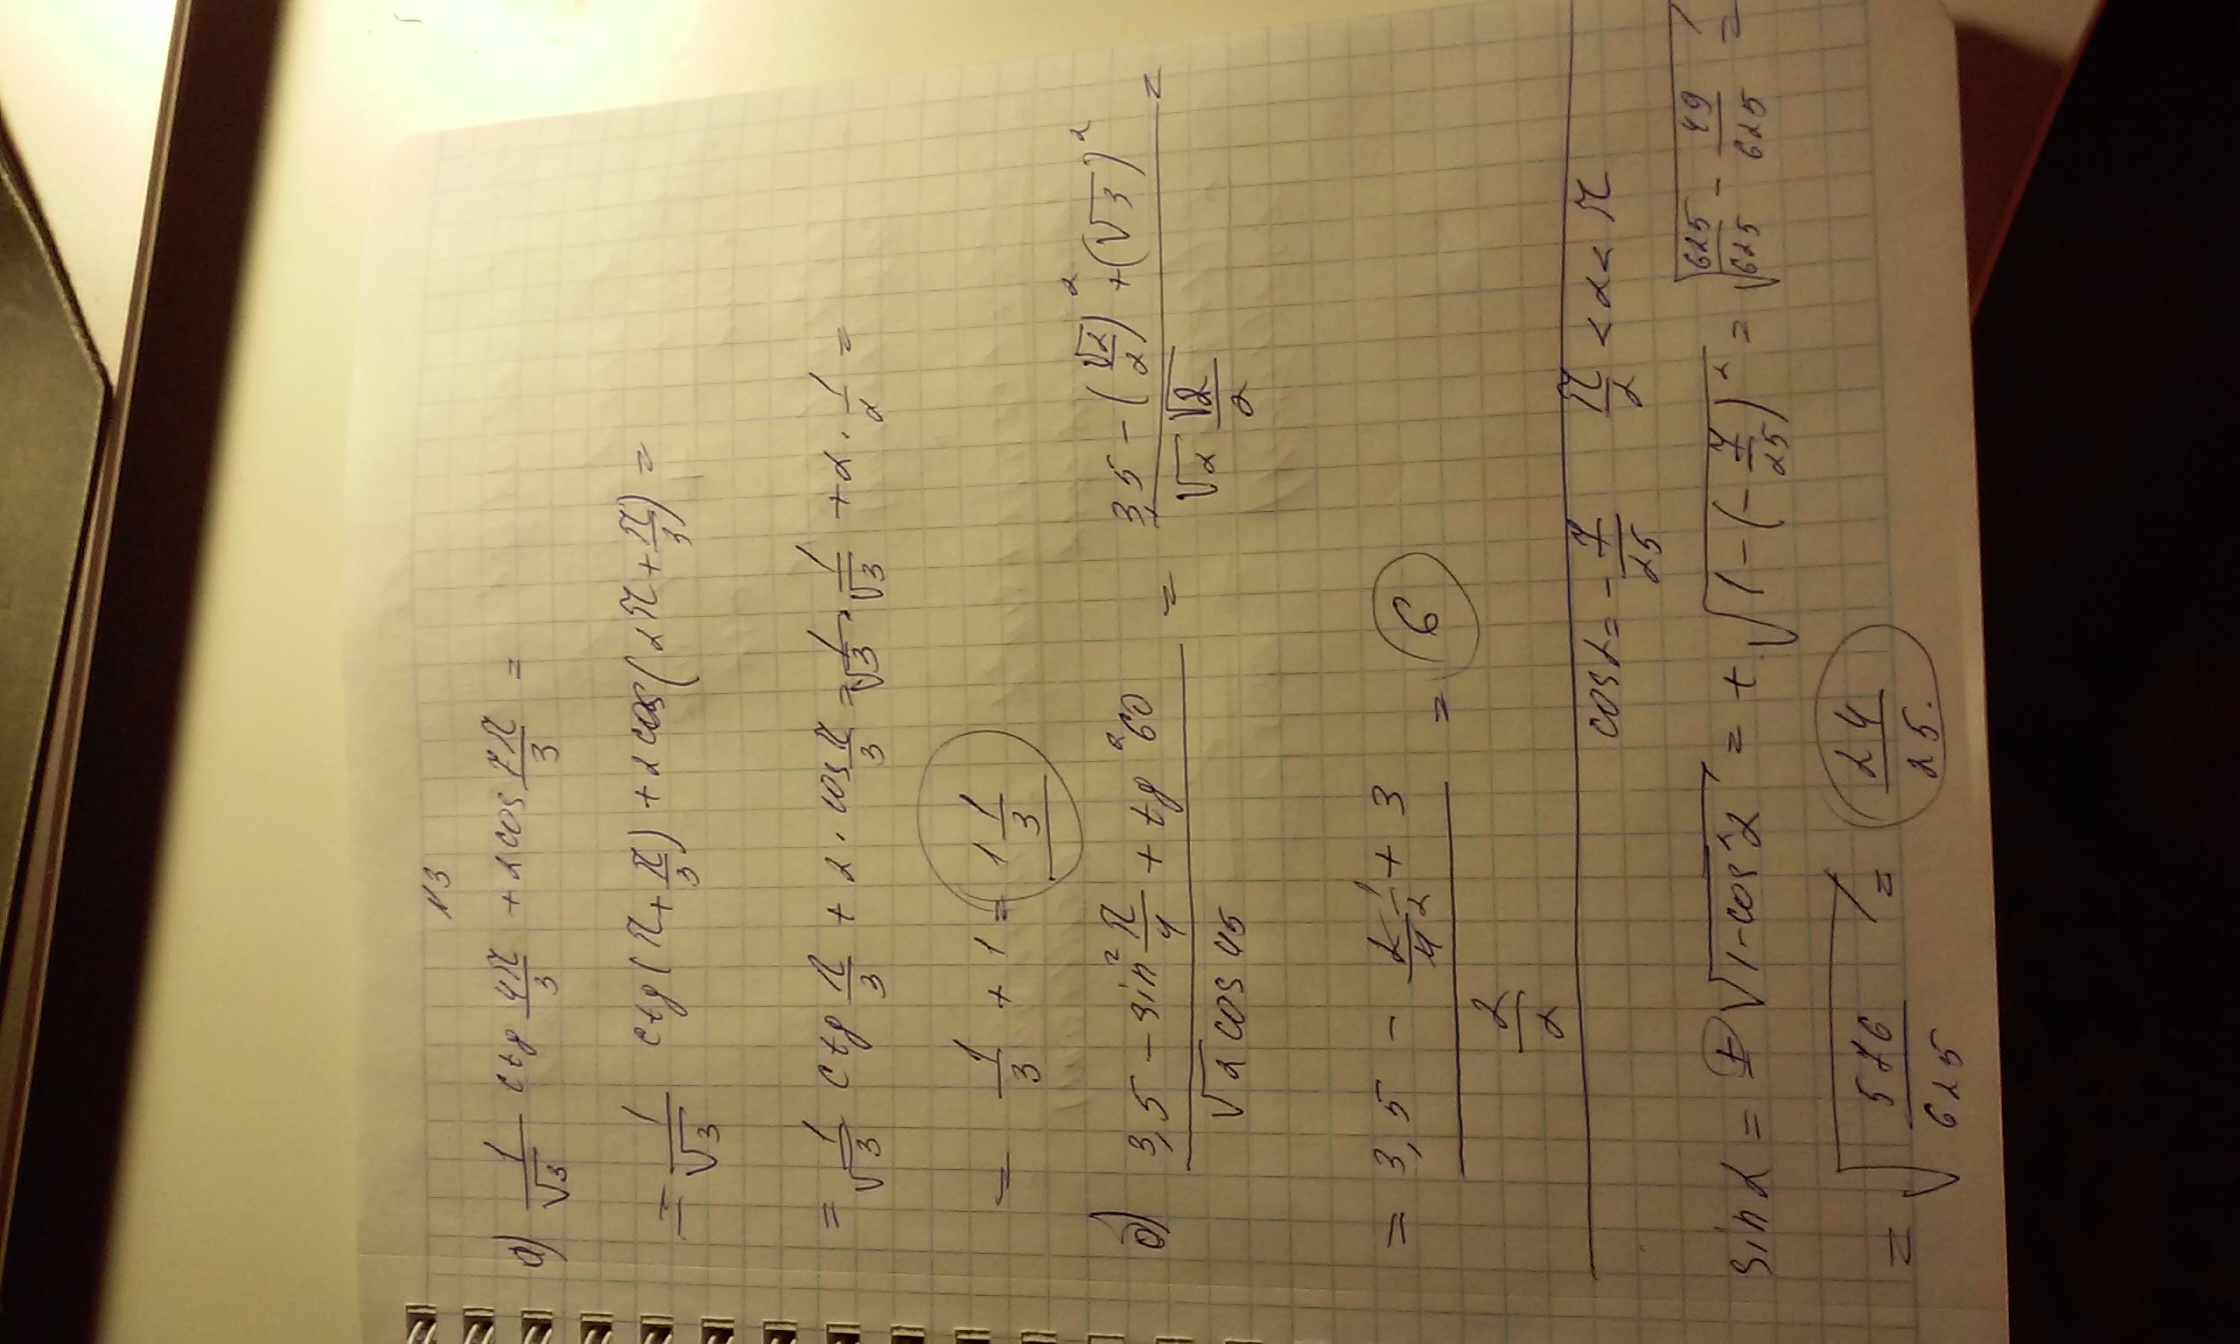 N3
а) 1/√3 ctg 4π/3 + 2cos 7π/3 =
= 1/√3 ctg(π + π/3) + 2cos(2π + π/3) =
= 1/√3 ctg π/3 + 2 · cos π/3 = 1/√3 · 1/√3 + 2 · 1/2 =
= 1/3 + 1 = 1 1/3
б) (3,5 - sin² π/4 + tg² 60)/(√2 cos 45) = (3,5 - (√2/2)² + (√3)²)/(√2 √2/2) =
= (3,5 - 2/4 1/2 + 3)/(2/2) = 6
cos α = - 7/25 π/2 < α < π
sin α = ± √(1-cos² α) = + √(1 - (-7/25)²) = √(625/625 - 49/625) =
= √(576/625) = 24/25.